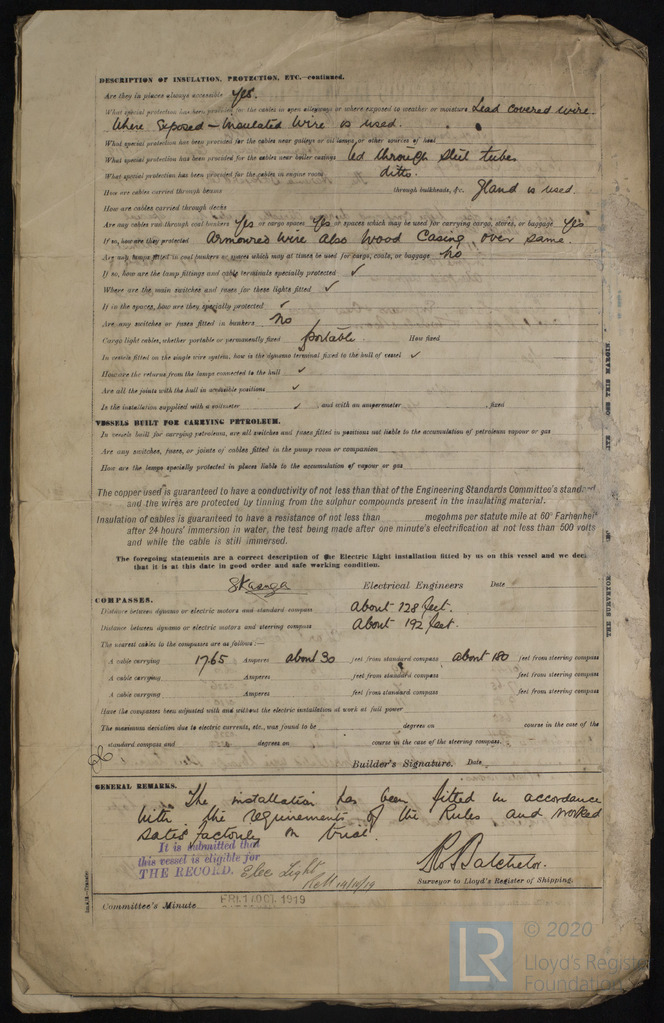 DESCRIPTION OF INSULATION, PROTECTION, ETC.—continued.
Are they in places always accessible Yes.
What special protection has been provided for the cables in open alleyways or where exposed to weather or moisture Lead covered wire.
Where Exposed – Insulated Wire is used.
What special protection has been provided for the cables near galleys or oil lamps or other sources of heat
What special protection has been provided for the cables near boiler casings Led through Steel tubes
What special protection has been provided for the cables in engine room ditto.
How are cables carried through beams through bulkheads, &c. Gland is used.
How are cables carried through decks
Are any cables run through coal bunkers Yes or cargo spaces Yes or spaces which may be used for carrying cargo, stores, or baggage Yes
If so, how are they protected Armoured Wire also Wood Casing over same.
Are any lamps fitted in coal bunkers or spaces which may at times be used for cargo, coals, or baggage No
If so, how are the lamp fittings and cable terminals specially protected ✓
Where are the main switches and fuses for these lights fitted ✓
If in the spaces, how are they specially protected ✓
Are any switches or fuses fitted in bunkers No
Cargo light cables, whether portable or permanently fixed portable. How fixed
In vessels fitted on the single wire system, how is the dynamo terminal fixed to the hull of vessel ✓
How are the returns from the lamps connected to the hull ✓
Are all the joints with the hull in accessible positions ✓
Is the installation supplied with a voltmeter ✓, and with an amperemeter , fixed
VESSELS BUILT FOR CARRYING PETROLEUM.
In vessels built for carrying petroleum, are all switches and fuses fitted in positions not liable to the accumulation of petroleum vapour or gas
Are any switches, fuses, or joints of cables fitted in the pump room or companion
How are the lamps specially protected in places liable to the accumulation of vapour or gas
The copper used is guaranteed to have a conductivity of not less than that of the Engineering Standards Committee's standard
and the wires are protected by tinning from the sulphur compounds present in the insulating material.
Insulation of cables is guaranteed to have a resistance of not less than megohms per statute mile at 60° Farhenheit
after 24 hours' immersion in water, the test being made after one minute's electrification at not less than 500 volts
and while the cable is still immersed.
The foregoing statements are a correct description of the Electric Light installation fitted by us on this vessel and we decl
that it is at this date in good order and safe working condition.
Electrical Engineers Date
COMPASSES.
Distance between dynamo or electric motors and standard compass About 128 feet.
Distance between dynamo or electric motors and steering compass About 192 feet.
The nearest cables to the compasses are as follows:—
A cable carrying 17.65 Amperes about 30 feet from standard compass about 180 feet from steering compass
A cable carrying Amperes feet from standard compass feet from steering compass
A cable carrying Amperes feet from standard compass feet from steering compass
Have the compasses been adjusted with and without the electric installation at work at full power
The maximum deviation due to electric currents, etc., was found to be degrees on course in the case of the
standard compass and degrees on course in the case of the steering compass.
Builder's Signature. Date
GENERAL REMARKS.
The installation has been fitted in accordance
with the requirements of the Rules and worked
satisfactorily on trial.
It is submitted that
this vessel is eligible for
THE RECORD. Elec Light
R. Batchelor.
Surveyor to Lloyd's Register of Shipping.
Committee's Minute FRI. 17 OCT. 1919
LR
© 2020
Lloyd's Register
Foundation